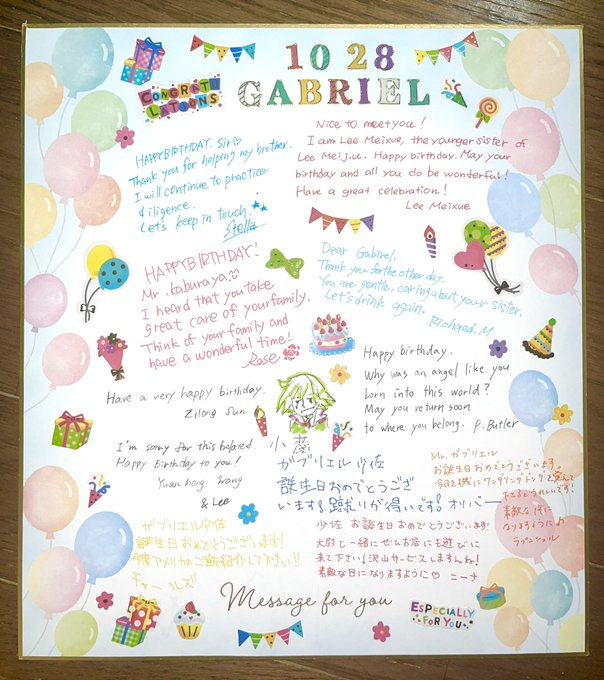 10 28
GABRIEL
CONGRATU
LATIONS
HAPPY BIRTHDAY. Sir♡
Thank you for helping my brother.
I will continue to practice
diligence.
Let's keep in touch.
Stella
Nice to meet you!
I am Lee Meixue, the younger sister of
Lee Meijiu. Happy birthday. May your
birthday and all you do be wonderful!
Have a great celebration!
Lee Meixue
HAPPY BIRTHDAY!
Mr. Kaburaya.
I heard that you take
great care of your family.
Think of your family and
have a wonderful time!
Rose
Dear Gabriel.
Thank you for the other day.
You are gentle, caring about your sister.
Let's drink again.
Richard. M
Have a very happy birthday.
Zilong Sun
Happy birthday.
Why was an angel like you
born into this world?
May you return soon
to where you belong. P. Butler
I'm sorry for this belated.
Happy Birthday to you!
Yuan heng Wang
& Lee
ガブリエル少佐
誕生日おめでとうござ
います!蹴りが得いです! オリバー
Mr. ガブリエル
お誕生日おめでとうございます。
素敵な
なりますように♪
ガブリエル少佐
誕生日おめでとうございます!
今度アメリカのご飯紹介して下さい!!
チャールズ
少佐 お誕生日おめでとうございます!
大尉と一緒にぜひお店にも遊びに
来て下さい! 沢山サービスしますんね!
素敵な日になりますように♡ ニーナ
Message for you
ESPECIALLY
FOR YOU